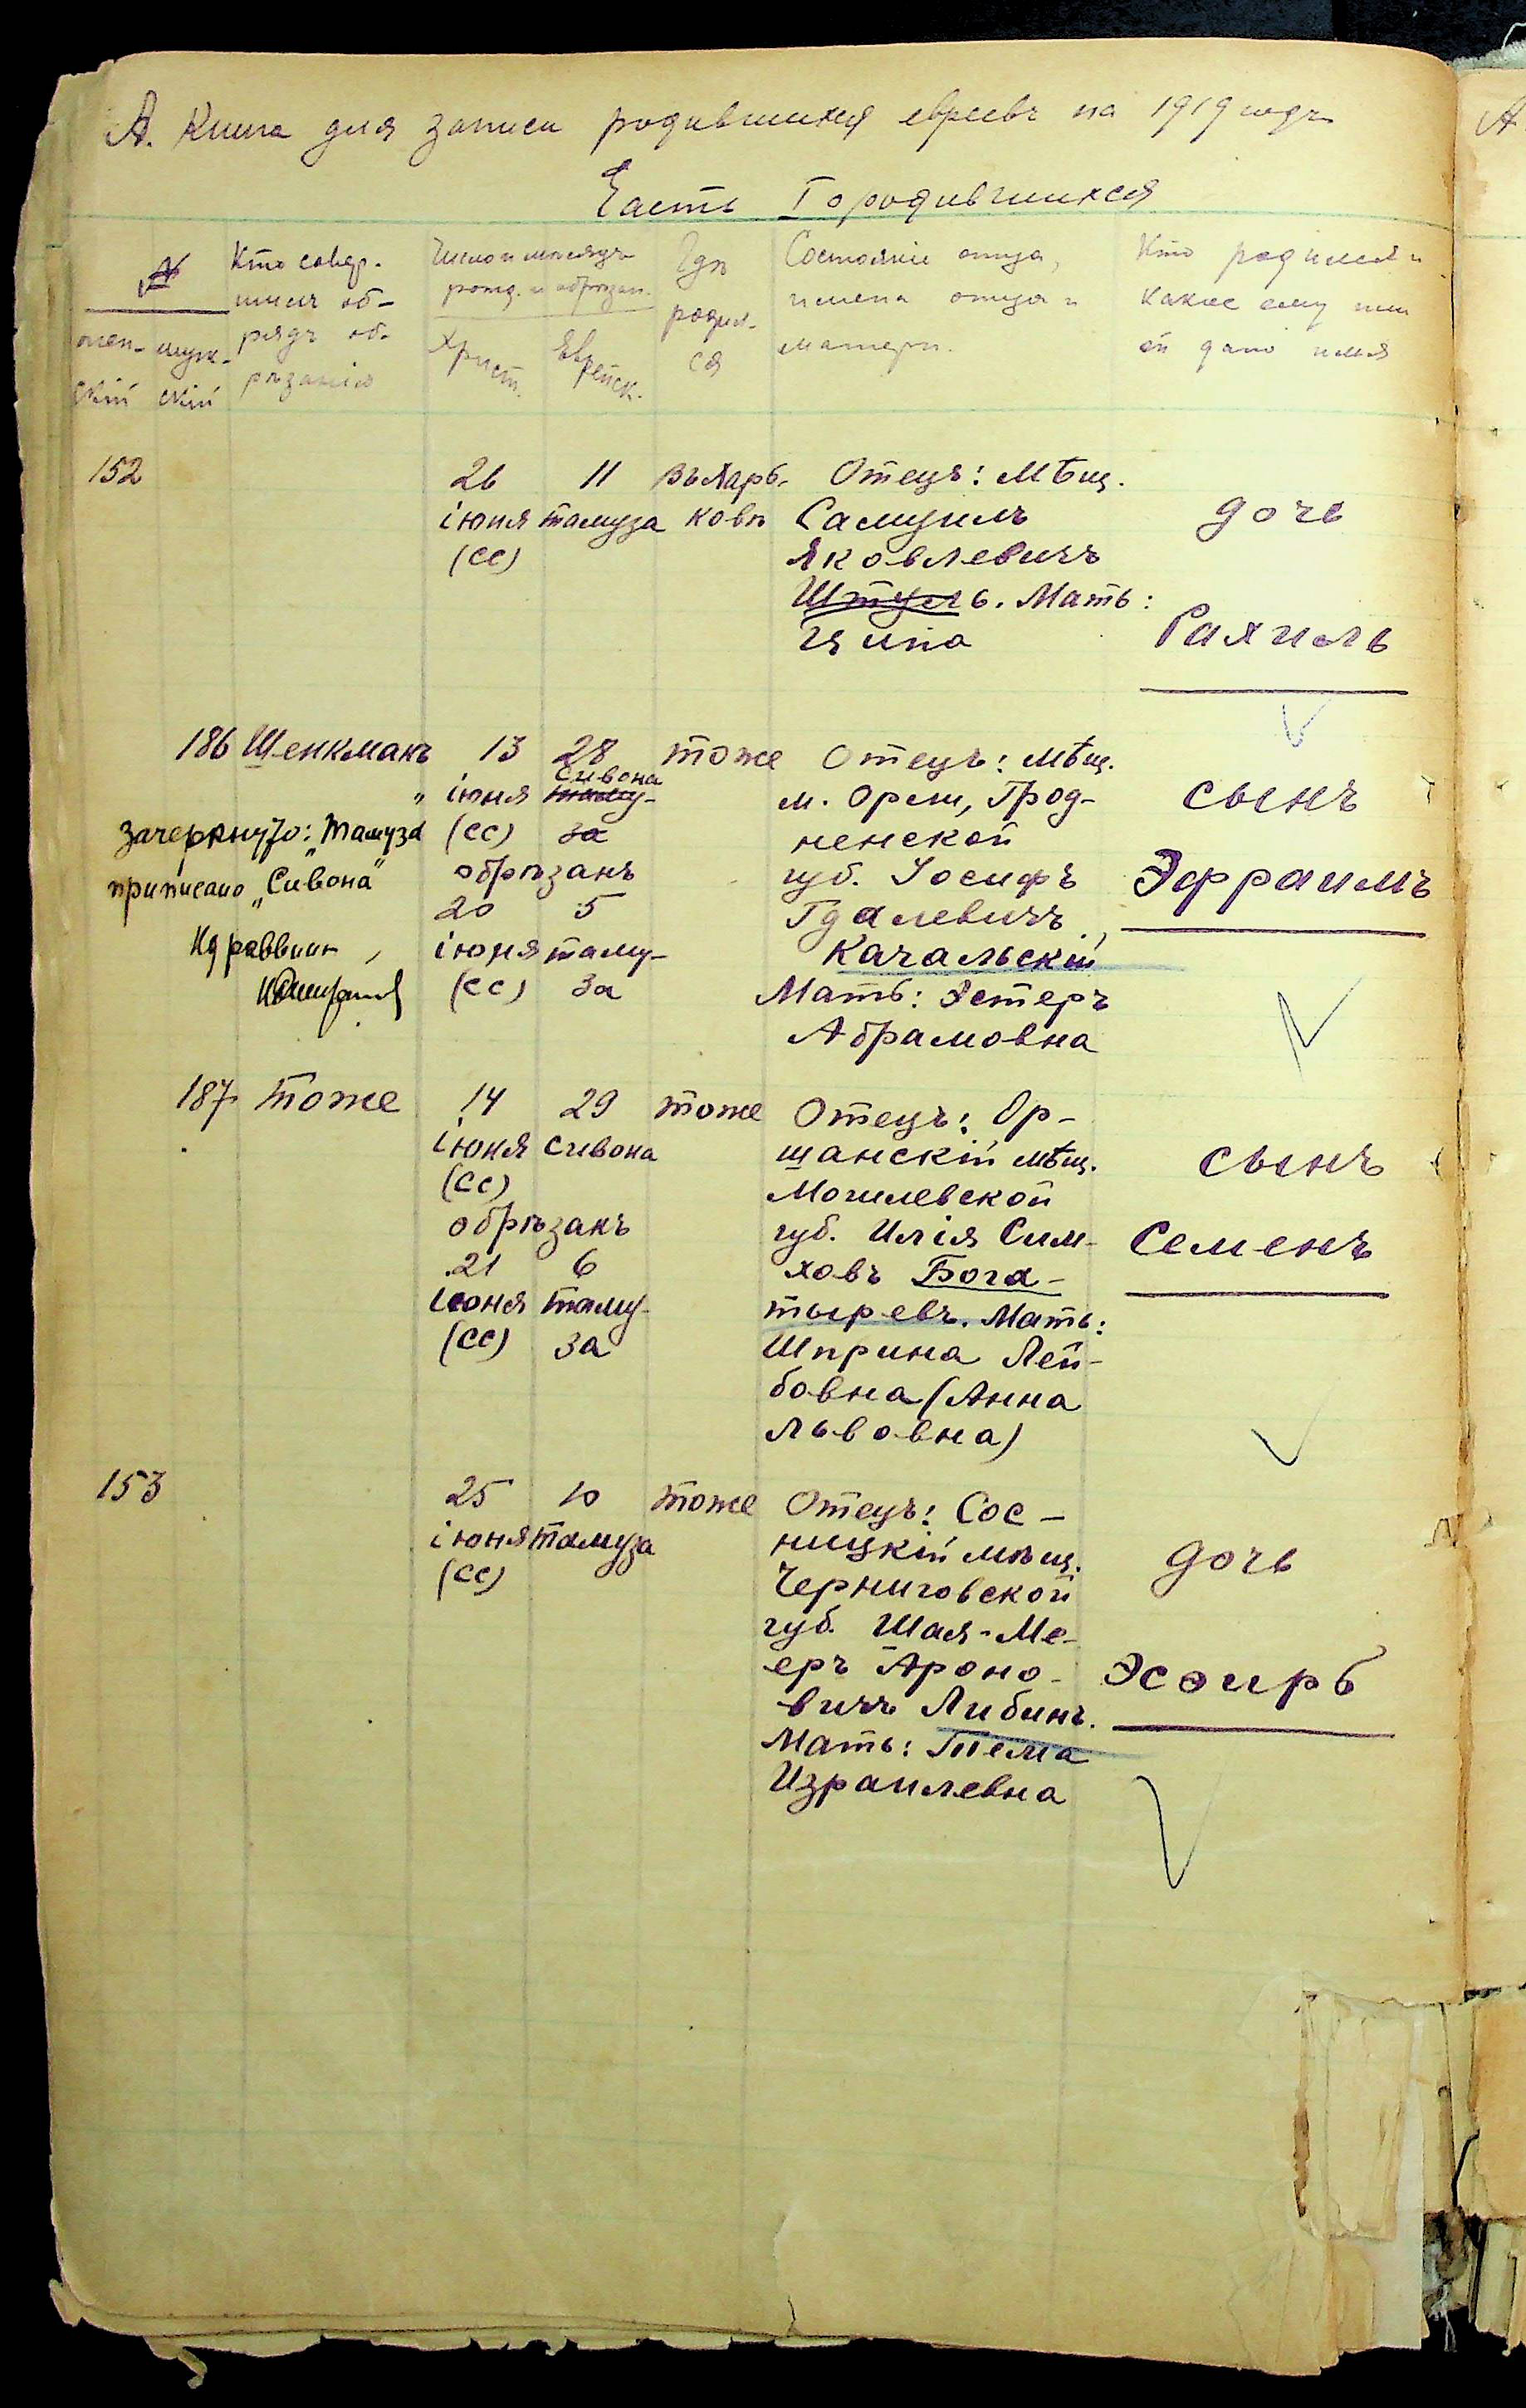 А. Книга для записи родившихся евреевъ на 1919 годъ
Часть I о родившихся
№
жен-
скій
муж-
скій
Кто совер-
шилъ об-
рядъ об-
рѣзанія
Число и мѣсяцъ
рожд. и обрѣзан.
Христ.
Еврейск.
Гдѣ
родил-
ся
Состояніе отца,
имена отца и
матери.
Кто родился и
какое ему или
ей дано имя
152
26
іюня
(сс)
11
тамуза
въ Харь-
ковѣ
Отецъ: Мѣщ.
Самуилъ
Яковлевичъ
Штуль. Мать:
Ципа
дочь
Рахиль
186
Шенкманъ
13
іюня
(сс)
28
Сивона
таму-
за
обрѣзанъ
20
іюня
(сс)
5
таму-
за
тоже
Отецъ: мѣщ.
м. Орли, Грод-
ненской
губ. Іосифъ
Гдалевичъ
Качальскій
Мать: Эстеръ
Абрамовна
сынъ
Эфраимъ
зачеркнуто: "Тамуза"
приписано "Сивона"
раввин
187
тоже
14
іюня
(сс)
29
сивона
обрѣзанъ
21
іюня
(сс)
6
таму-
за
тоже
Отецъ: Ор-
шанскій мѣщ.
Могилевской
губ. Илія Сим-
ховъ Бога-
тыревъ. Мать:
Шприна Лей-
бовна (Анна
Львовна)
сынъ
Семенъ
153
25
іюня
(сс)
10
тамуза
тоже
Отецъ: Сос-
ницкій мѣщ.
Черниговской
губ. Шая-Ме-
еръ Ароно-
вичъ Либинъ.
Мать: Тема
Израилевна
дочь
Эсѳирь